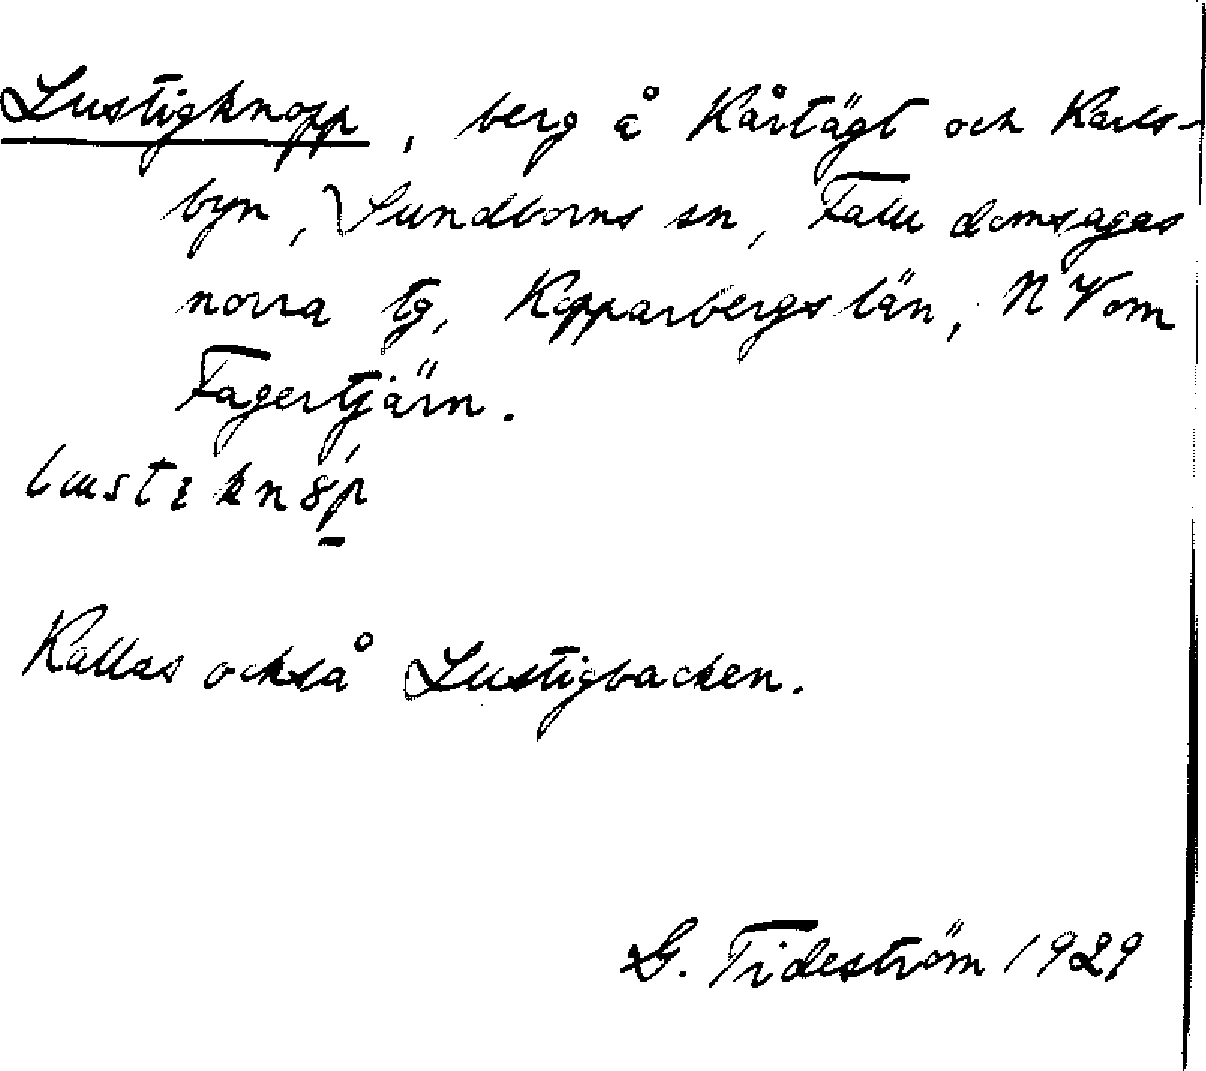 Lustigknopp, berg å Kårtägt och Karls-
byn, Sundborns sn, Falu domsagas
norra tg, Kopparbergs län, NV om
Fagertjärn.
Kallas också Lustigbacken.
G. Tideström 1929